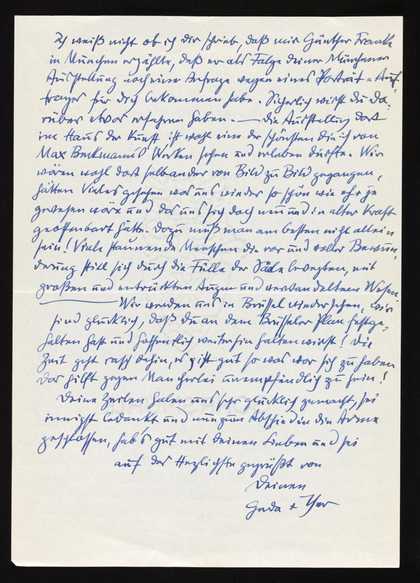 Ich weiß nicht ob ich dir schrieb, daß mir Günther Franke
in München erzählte, daß er als Folge deiner Münchener
Ausstellung noch eine Anfrage wegen eines Porträt-Auf-
trages für dich bekommen habe. Sicherlich wirst du da-
rüber etwas erfahren haben. — die Ausstellung dort
im Haus der Kunst ist wohl eine der schönsten die ich von
Max Beckmanns Werken sehen und erleben durfte. Wir
wären wohl dort selbander von Bild zu Bild gegangen,
hätten Vieles gesehen was uns wieder so schön wie eh je
gewesen wäre und das uns sich doch neu und in alter Kraft
geoffenbart hätte. Dazu muß man am besten nicht allein
sein! Viele staunende Menschen die vor und voller Bewun-
derung still sich durch die Fülle der Säle bewegten, mit
großen und entrückten Augen und verwandeltem Wesen.
Wir werden uns in Brüssel wiedersehen, wir
sind glücklich, daß du an dem Brüsseler Plan festge-
halten hast und hoffentlich weiterhin halten wirst! die
Zeit geht rasch dahin, es ist gut so was vor sich zu haben
das hilft gegen Mancherlei unempfindlich zu sein!
Deine Zeilen haben uns sehr glücklich gemacht, sei
innigst bedankt und nun zum Abschied in die Arme
geschlossen, hab's gut mit deinen Lieben und sei
auf das Herzlichste gegrüßt von
Deinen